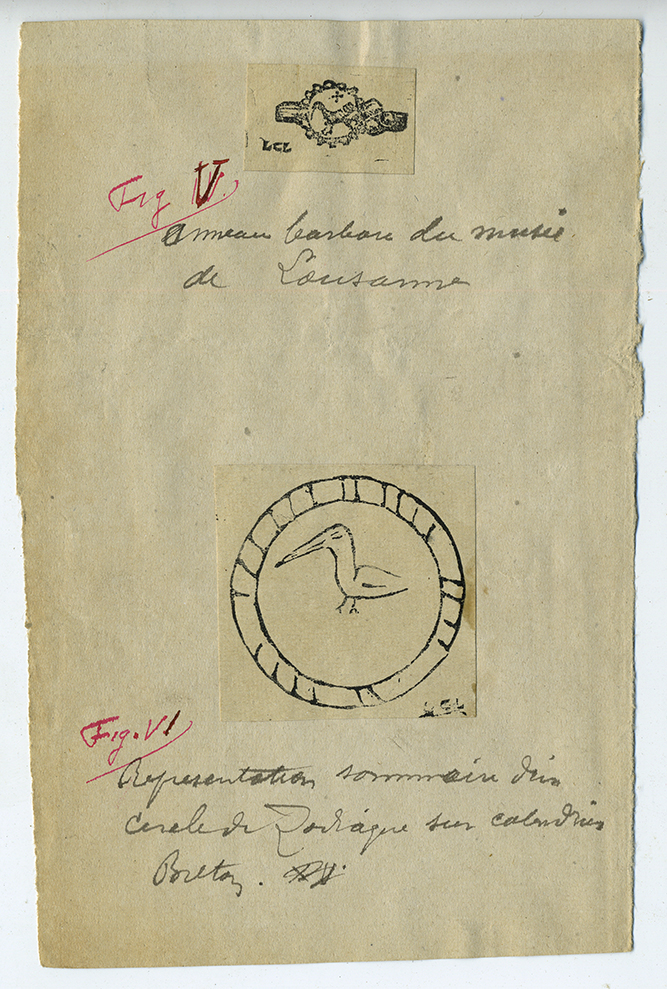 Fig V
anneau barbare du musée
de Lousanne
Fig. VI
Representation sommaire d'un
cercle de Zodiaque sur calendrier
Breton.